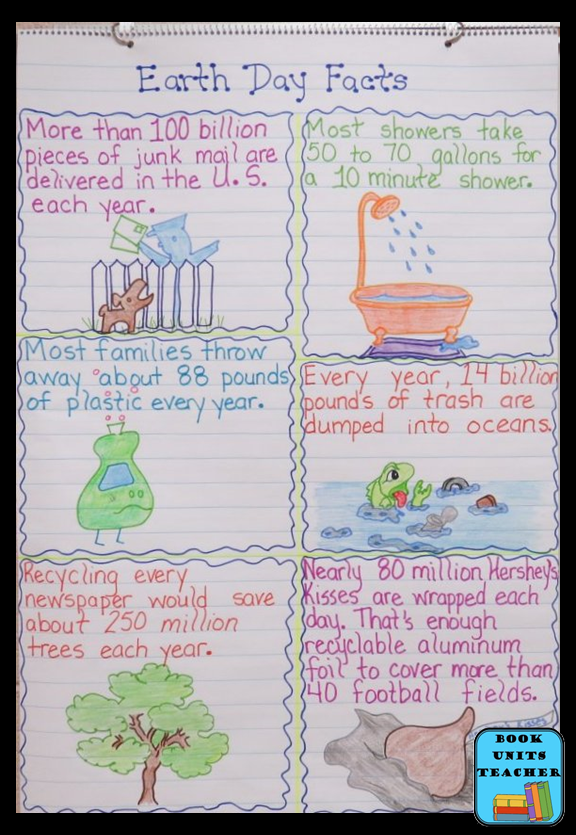 Earth Day Facts
More than 100 billion
pieces of junk mail are
delivered in the U.S.
each year.
Most showers take
50 to 70 gallons for
a 10 minute shower.
Most families throw
away about 88 pounds
of plastic every year.
Every year, 14 billion
pounds of trash are
dumped into oceans.
Recycling every
newspaper would save
about 250 million
trees each year.
Nearly 80 million Hershey's
Kisses are wrapped each
day. That's enough
recyclable aluminum
foil to cover more than
40 football fields.
Kisses
BOOK
UNITS
TEACHER